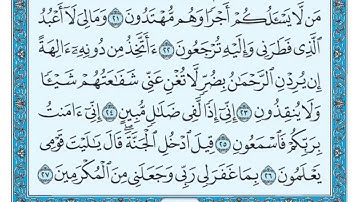 مَن لَّا يَسْـَٔلُكُمْ أَجْرًا وَهُم مُّهْتَدُونَ ٢١ وَمَالِيَ لَآ أَعْبُدُ
ٱلَّذِى فَطَرَنِى وَإِلَيْهِ تُرْجَعُونَ ٢٢ ءَأَتَّخِذُ مِن دُونِهِۦٓ ءَالِهَةً
إِن يُرِدْنِ ٱلرَّحْمَٰنُ بِضُرٍّ لَّا تُغْنِ عَنِّى شَفَٰعَتُهُمْ شَيْـًٔا
وَلَا يُنقِذُونِ ٢٣ إِنِّىٓ إِذًا لَّفِى ضَلَٰلٍ مُّبِينٍ ٢٤ إِنِّىٓ ءَامَنتُ
بِرَبِّكُمْ فَٱسْمَعُونِ ٢٥ قِيلَ ٱدْخُلِ ٱلْجَنَّةَ قَالَ يَٰلَيْتَ قَوْمِى
يَعْلَمُونَ ٢٦ بِمَا غَفَرَ لِى رَبِّى وَجَعَلَنِى مِنَ ٱلْمُكْرَمِينَ ٢٧